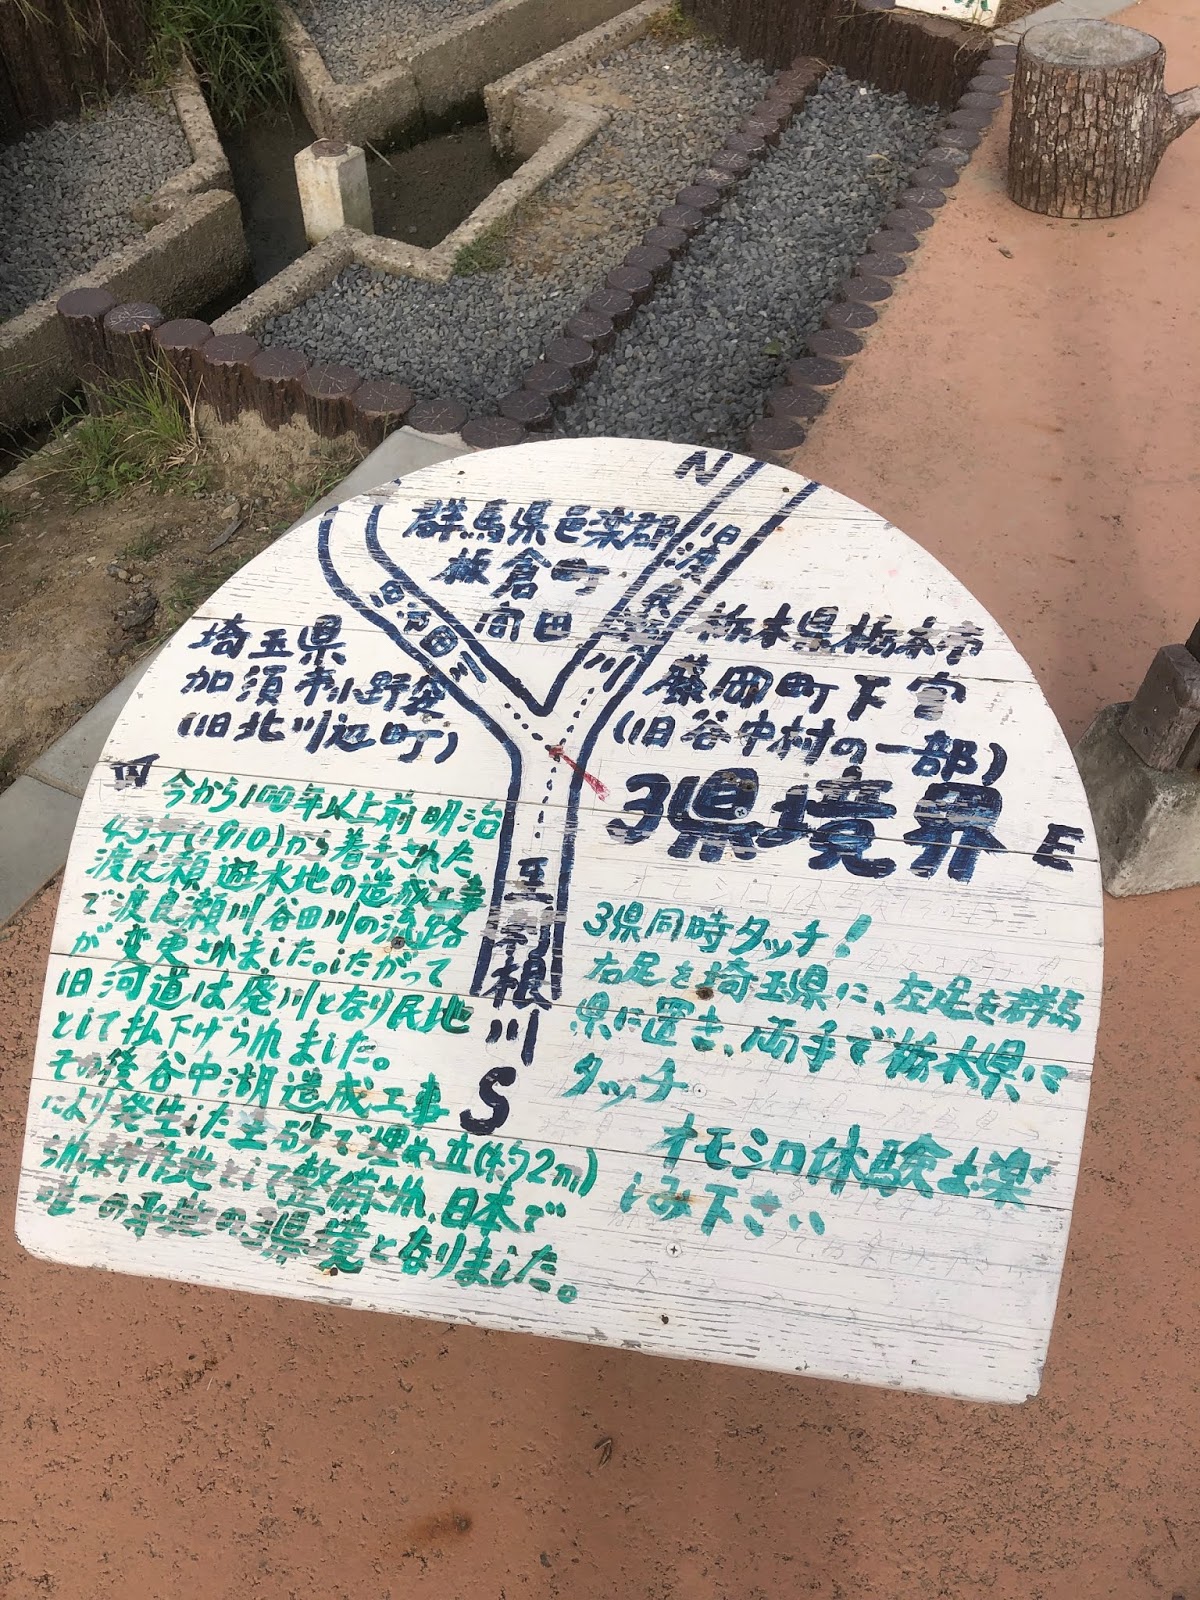 N
群馬県邑楽郡
板倉町
旧渡良瀬川
旧谷田川
埼玉県
加須市小野袋
(旧北川辺町)
栃木県栃木市
藤岡町下宮
(旧谷中村の一部)
3県境界
E
W
今から100年以上前明治
43年(1910)から着手された
渡良瀬遊水地の造成工事
で渡良瀬川谷田川の流路
が変更されました。したがって
旧河道は廃川となり民地
として払下げられました。
その後谷中湖造成工事
により発生した土砂で埋め立(約2m)
られ耕作地として整備され、日本で
唯一の平地の3県境となりました。
至利根川
S
3県同時タッチ!
右足を埼玉県に、左足を群馬
県に置き、両手で栃木県に
タッチ。
オモシロ体験お楽
しみ下さい